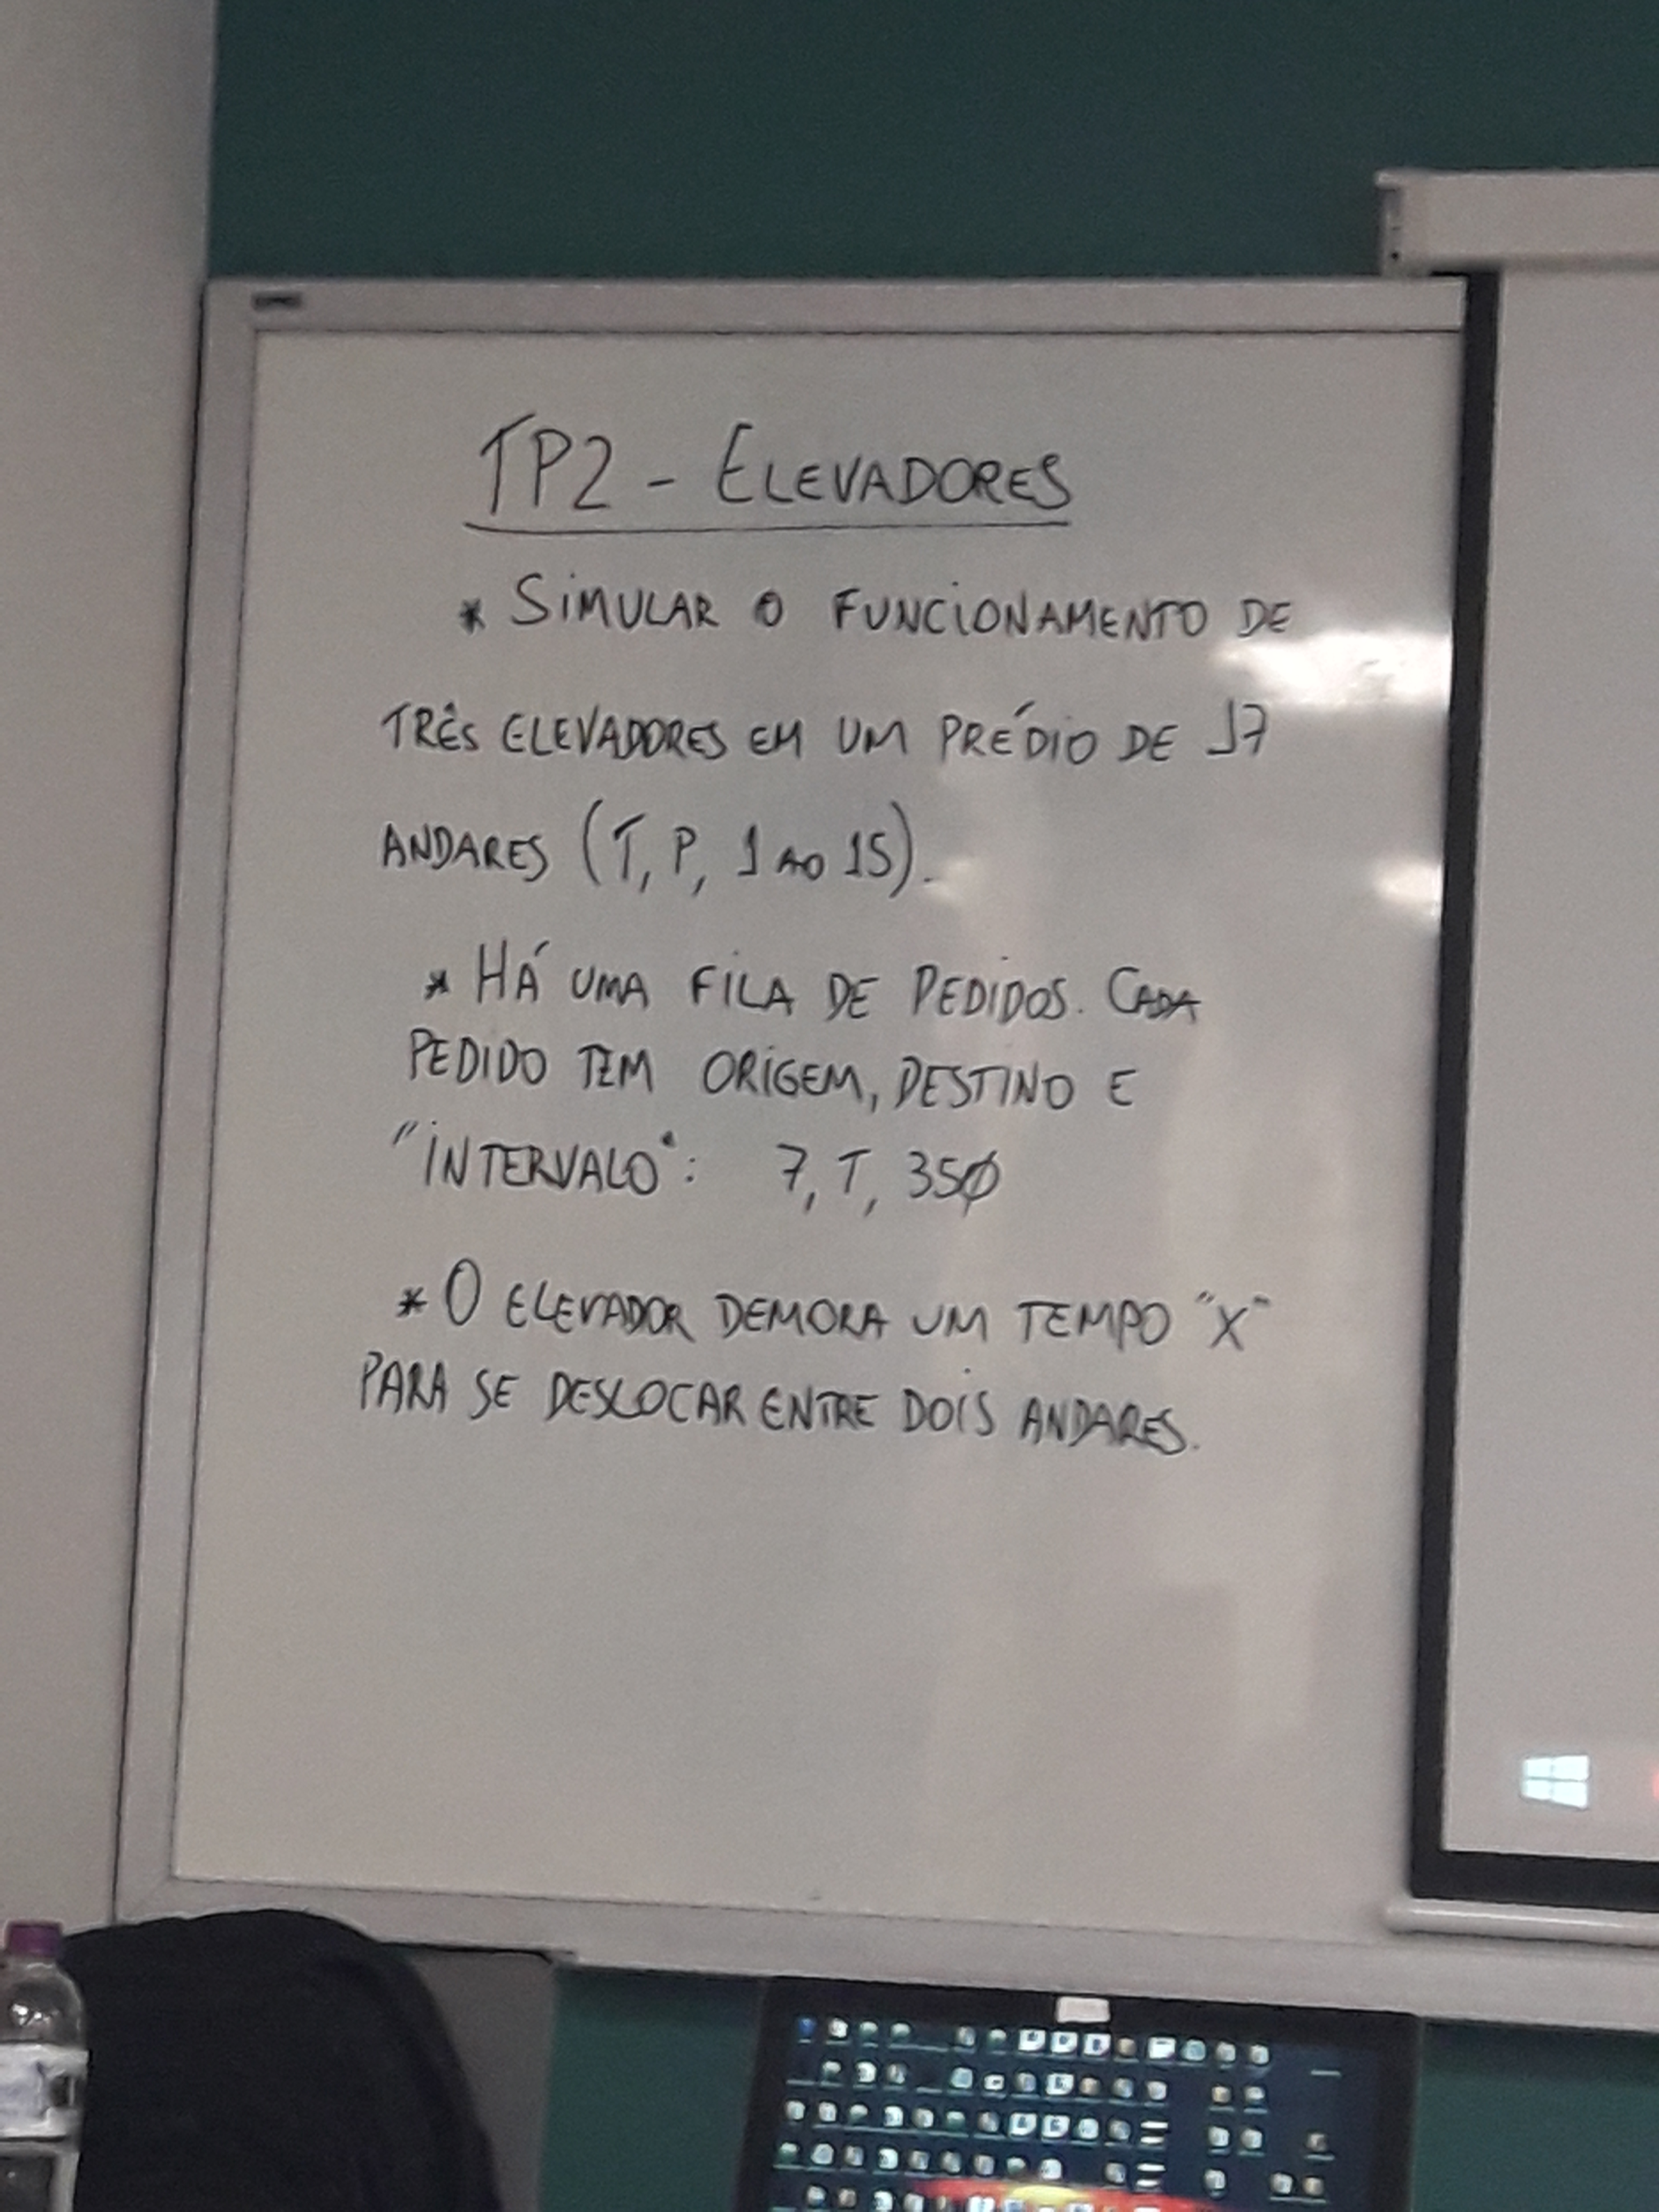 TP2 - ELEVADORES
* SIMULAR O FUNCIONAMENTO DE
TRÊS ELEVADORES EM UM PRÉDIO DE 17
ANDARES (T, P, 1 AO 15).
* HÁ UMA FILA DE PEDIDOS. CADA
PEDIDO TEM ORIGEM, DESTINO E
"INTERVALO": 7, T, 350
* O ELEVADOR DEMORA UM TEMPO "X"
PARA SE DESLOCAR ENTRE DOIS ANDARES.